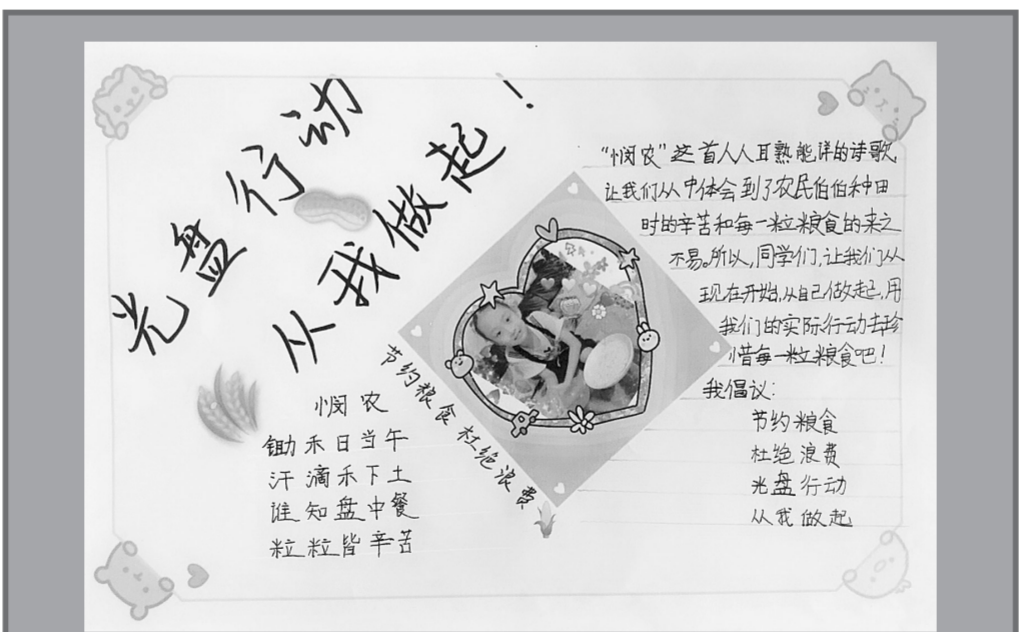 光盘行动
从我做起！
悯农
锄禾日当午
汗滴禾下土
谁知盘中餐
粒粒皆辛苦
节约粮食 杜绝浪费
“悯农”这首人人耳熟能详的诗歌,
让我们从中体会到了农民伯伯种田
时的辛苦和每一粒粮食的来之
不易。所以,同学们,让我们从
现在开始,从自己做起,用
我们的实际行动去珍
惜每一粒粮食吧!
我倡议:
节约粮食
杜绝浪费
光盘行动
从我做起